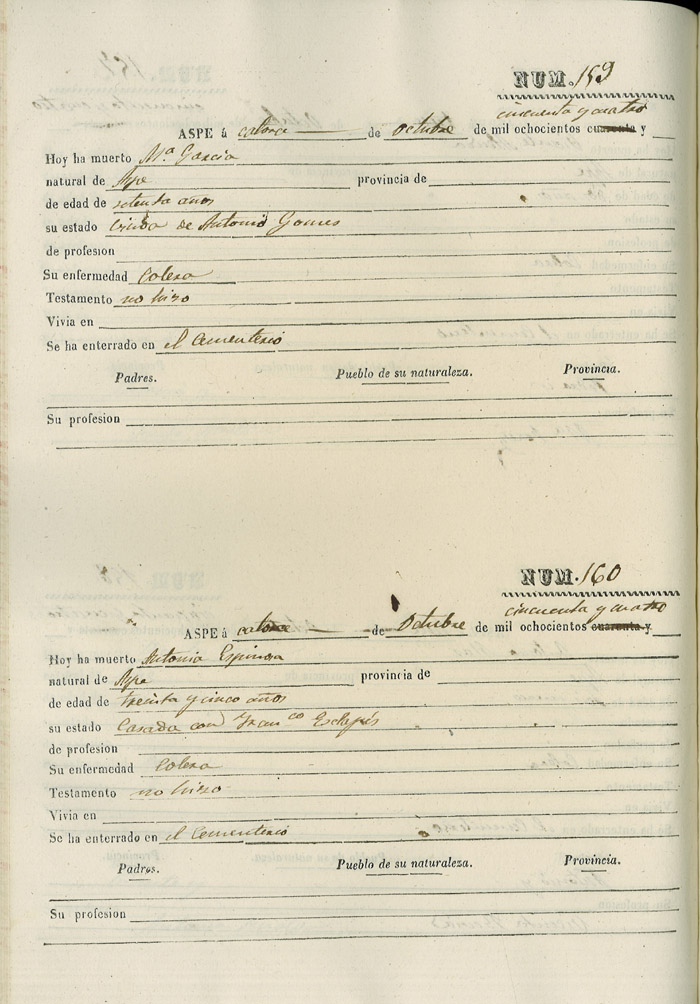 NUM. 159
cincuenta y cuatro
ASPE á catorce de Octubre de mil ochocientos cuarenta y
Hoy ha muerto Mª Garcia
natural de Aspe provincia de
de edad de setenta años
su estado viuda de Antonio Gomes
de profesion
Su enfermedad Colera
Testamento no hizo
Vivia en
Se ha enterrado en el Cementerio
Padres. Pueblo de su naturaleza. Provincia.
Su profesion
NUM. 160
cincuenta y cuatro
ASPE á catorce de Octubre de mil ochocientos cuarenta y
Hoy ha muerto Antonia Espinosa
natural de Aspe provincia de
de edad de treinta y cinco años
su estado Casada con Franco Esclapés
de profesion
Su enfermedad Colera
Testamento no hizo
Vivia en
Se ha enterrado en el Cementerio
Padres. Pueblo de su naturaleza. Provincia.
Su profesion